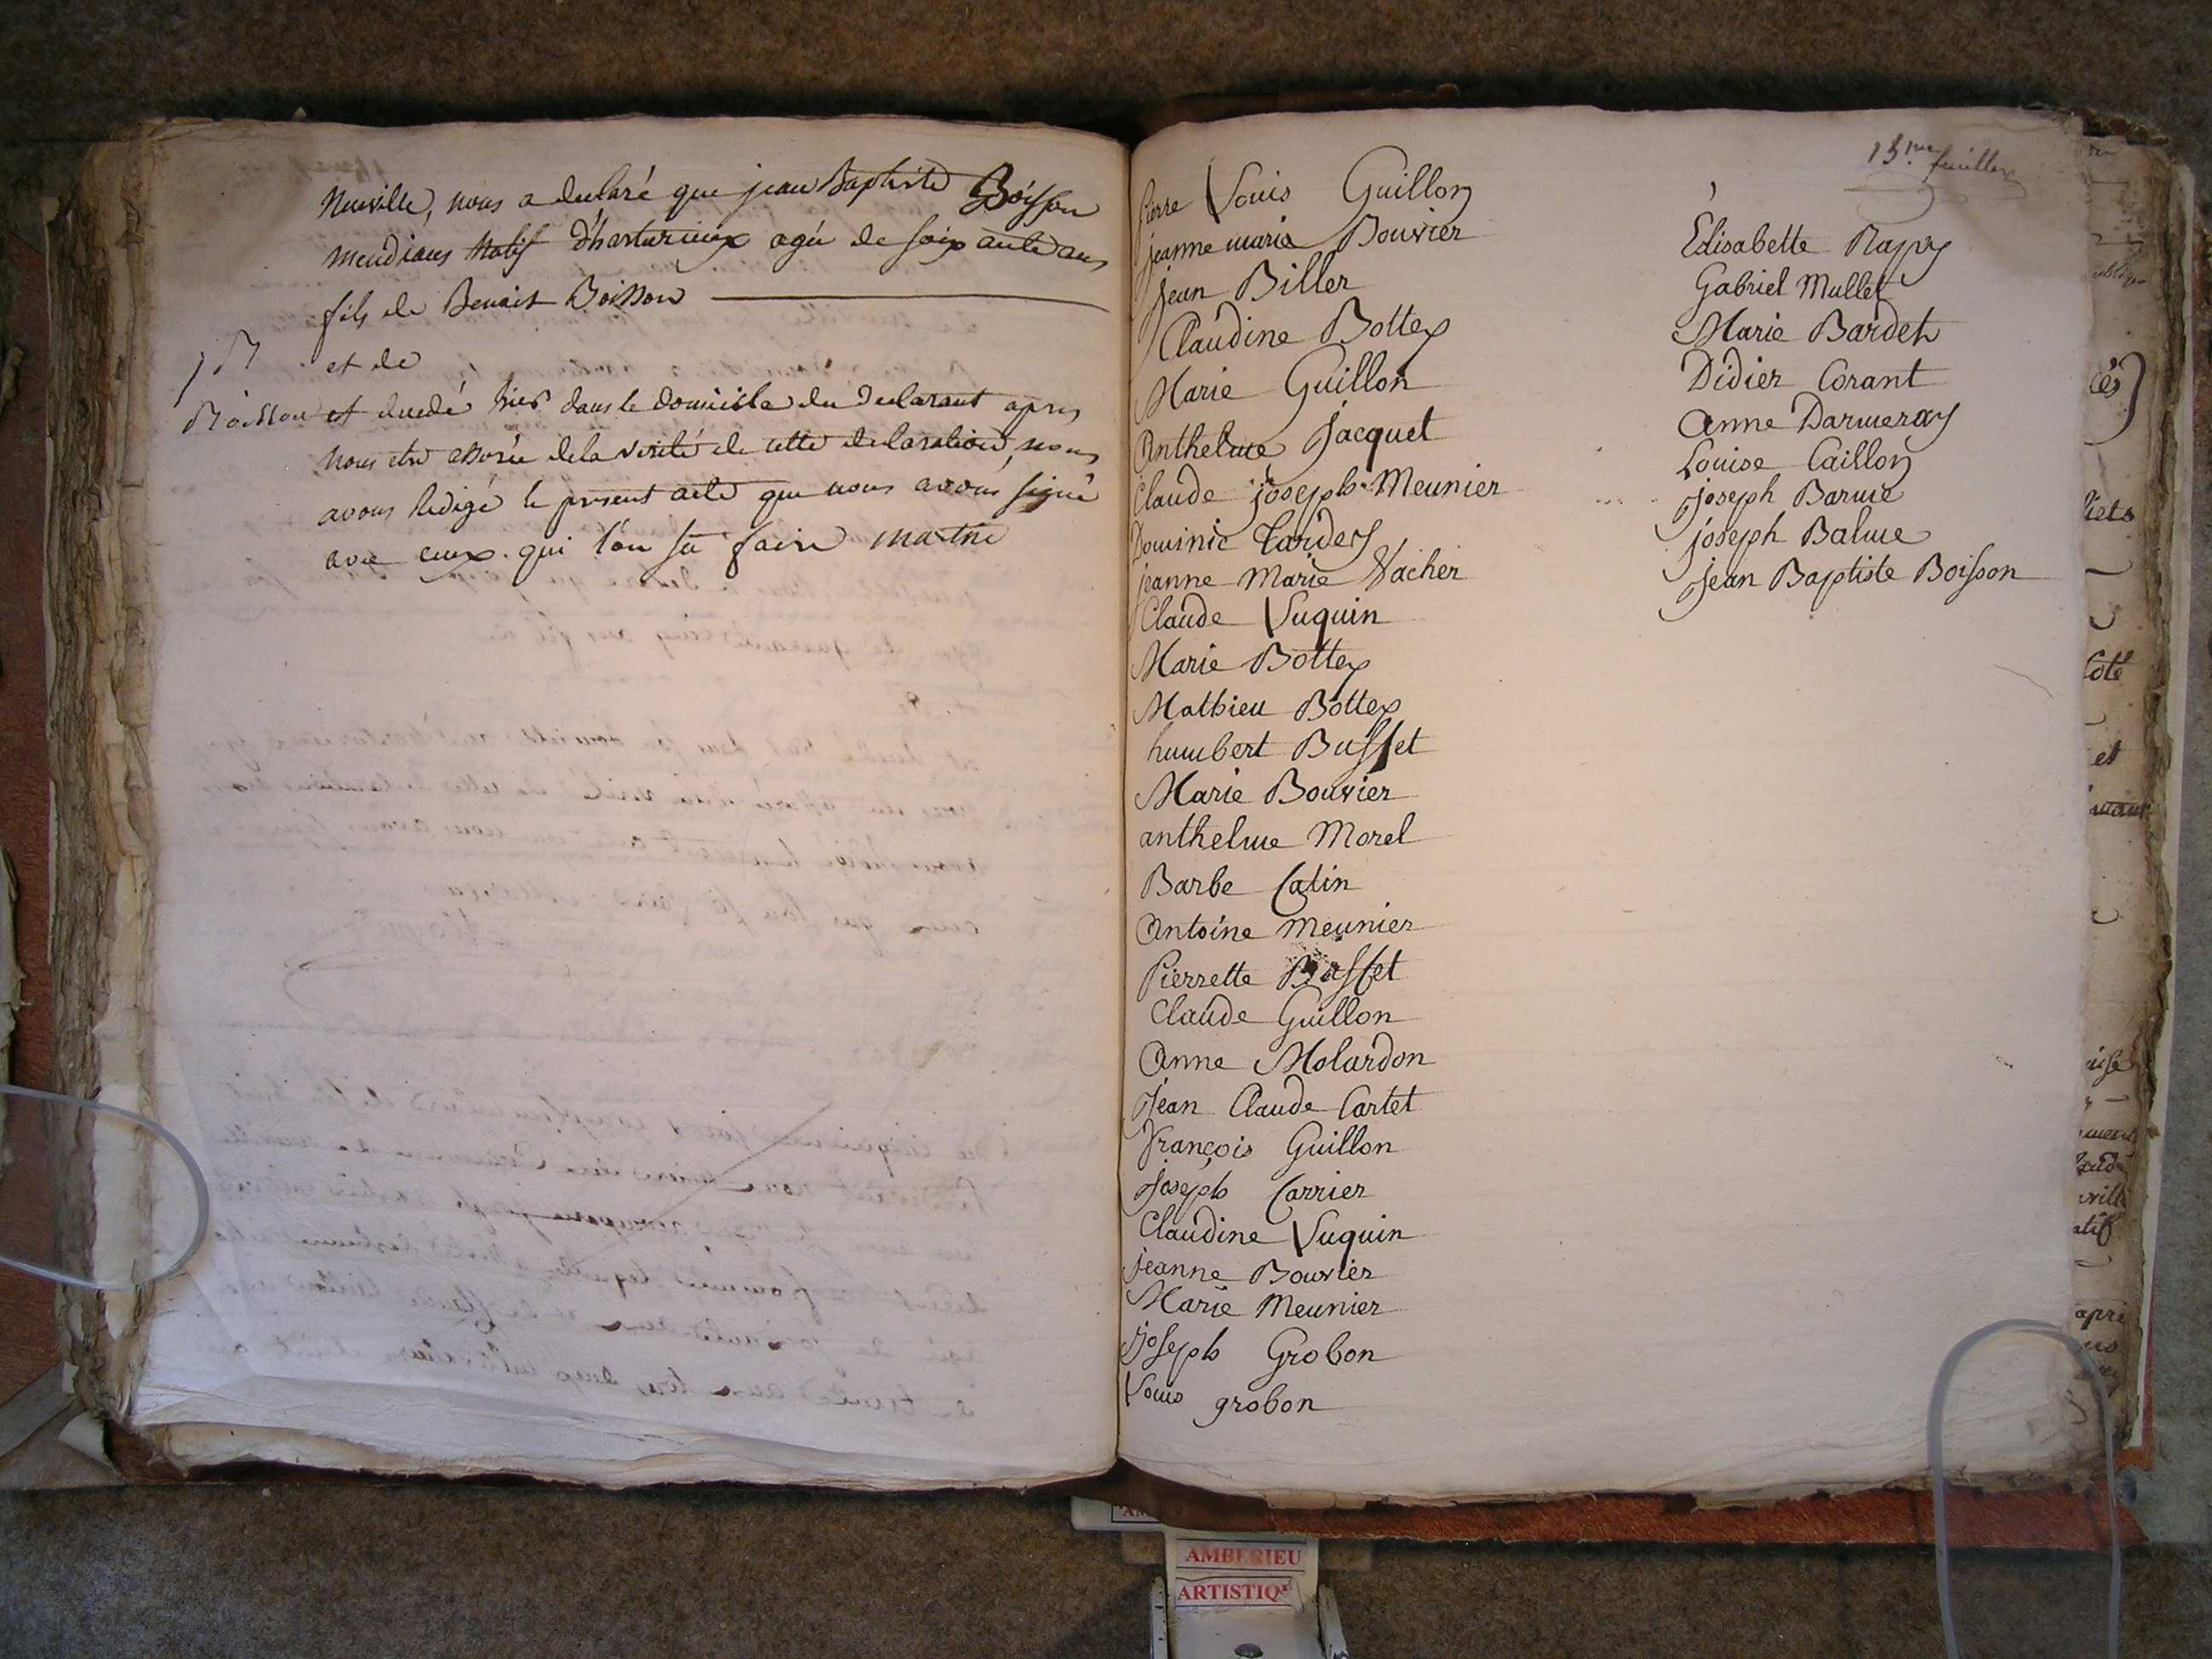 Neuville, nous a declaré que jean Baptiste Boisson
mendians Natif d'hauturieux agée de soixante ans
fils de Benoit Boisson
et de
Boisson
et decedé hier dans le domicile du declarant apres
nous etre assurée de la verité de cette declaration, nous
avons redigé le present acte que nous avons signé
avec ceux qui l'on sü faire
Pierre Louis Guillon
jeanne marie Bouvier
jean Biller
Claudine Bottex
Marie Guillon
Anthelme Jacquet
Claude joseph Meunier
Dominic Tardy
jeanne Marie Vacher
Claude Vuquin
Marie Bottex
Mathieu Bottex
humbert Buffet
Marie Bouvier
anthelme Morel
Barbe Catin
Antoine Meunier
Pierrette Buffet
Claude Guillon
Anne Molardon
Jean Claude Cartet
François Guillon
Joseph Carrier
Claudine Vuquin
jeanne Bouvier
Marie Meunier
Joseph Grobon
Louis grobon
feuillet
Elisabette Rapy
Gabriel Mullet
Marie Bardet
Didier Corant
Anne Darmeray
Louise Caillon
joseph Barme
joseph Balme
Jean Baptiste Boisson
AMBERIEU
ARTISTIQ